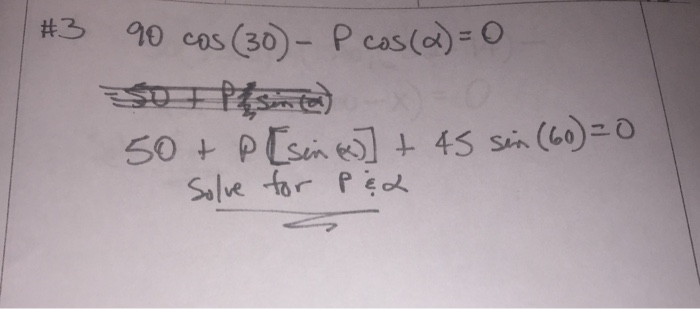 #3 90 cos(30) - P cos(α) = 0
50 + P sin(α)
50 + P[sin α] + 45 sin(60) = 0
Solve for P & α